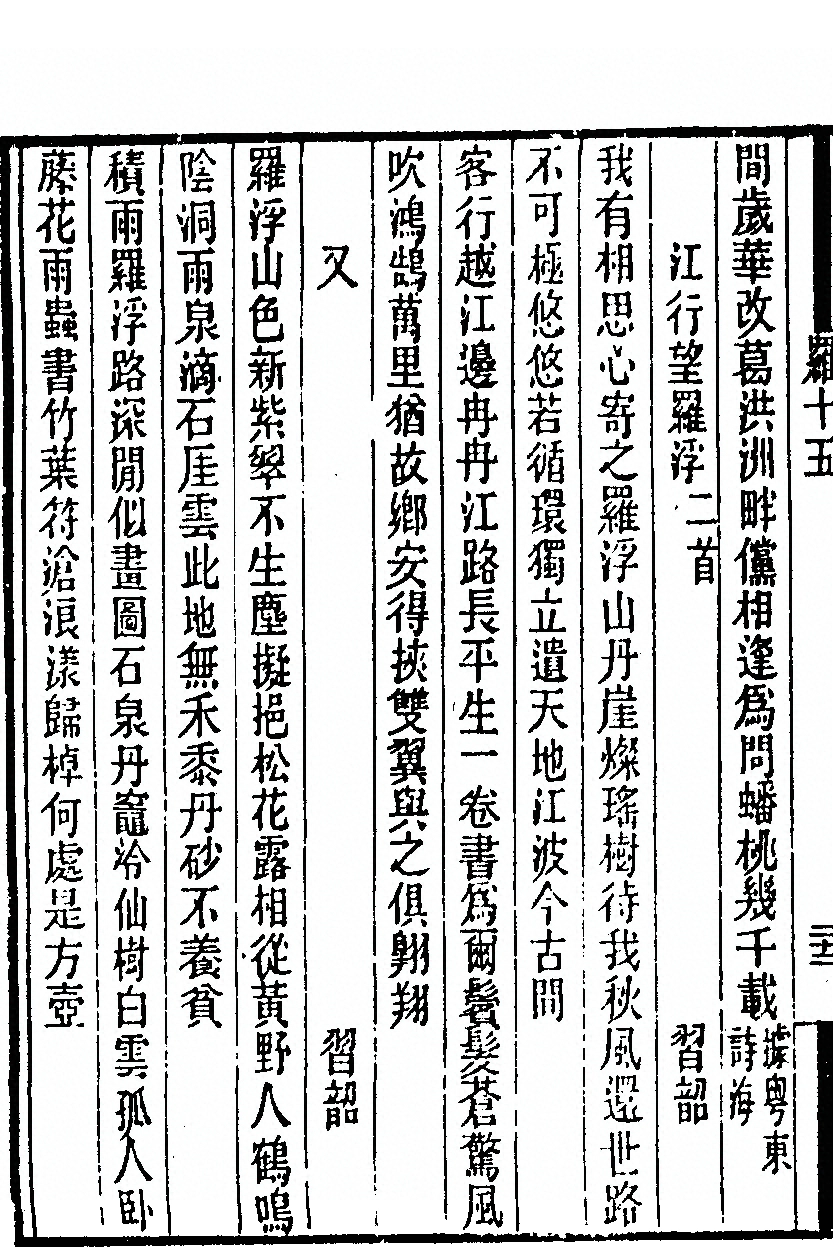 羅十五
間歲華改葛洪洲畔儻相逢爲問蟠桃幾千載據粤東詩海
江行望羅浮二首　習韶
我有相思心寄之羅浮山丹崖燦瑤樹待我秋風還世路
不可極悠悠若循環獨立遺天地江波今古間
客行越江邊冉冉江路長平生一卷書爲爾鬢髮蒼驚風
吹鴻鵠萬里猶故鄉安得挾雙翼與之俱翱翔
又　習韶
羅浮山色新紫翠不生塵擬挹松花露相從黃野人鶴鳴
陰洞雨泉滴石厓雲此地無禾黍丹砂不養貧
積雨羅浮路深閒似畫圖石泉丹竈冷仙樹白雲孤人卧
藤花雨蟲書竹葉符滄浪漾歸棹何處是方壺